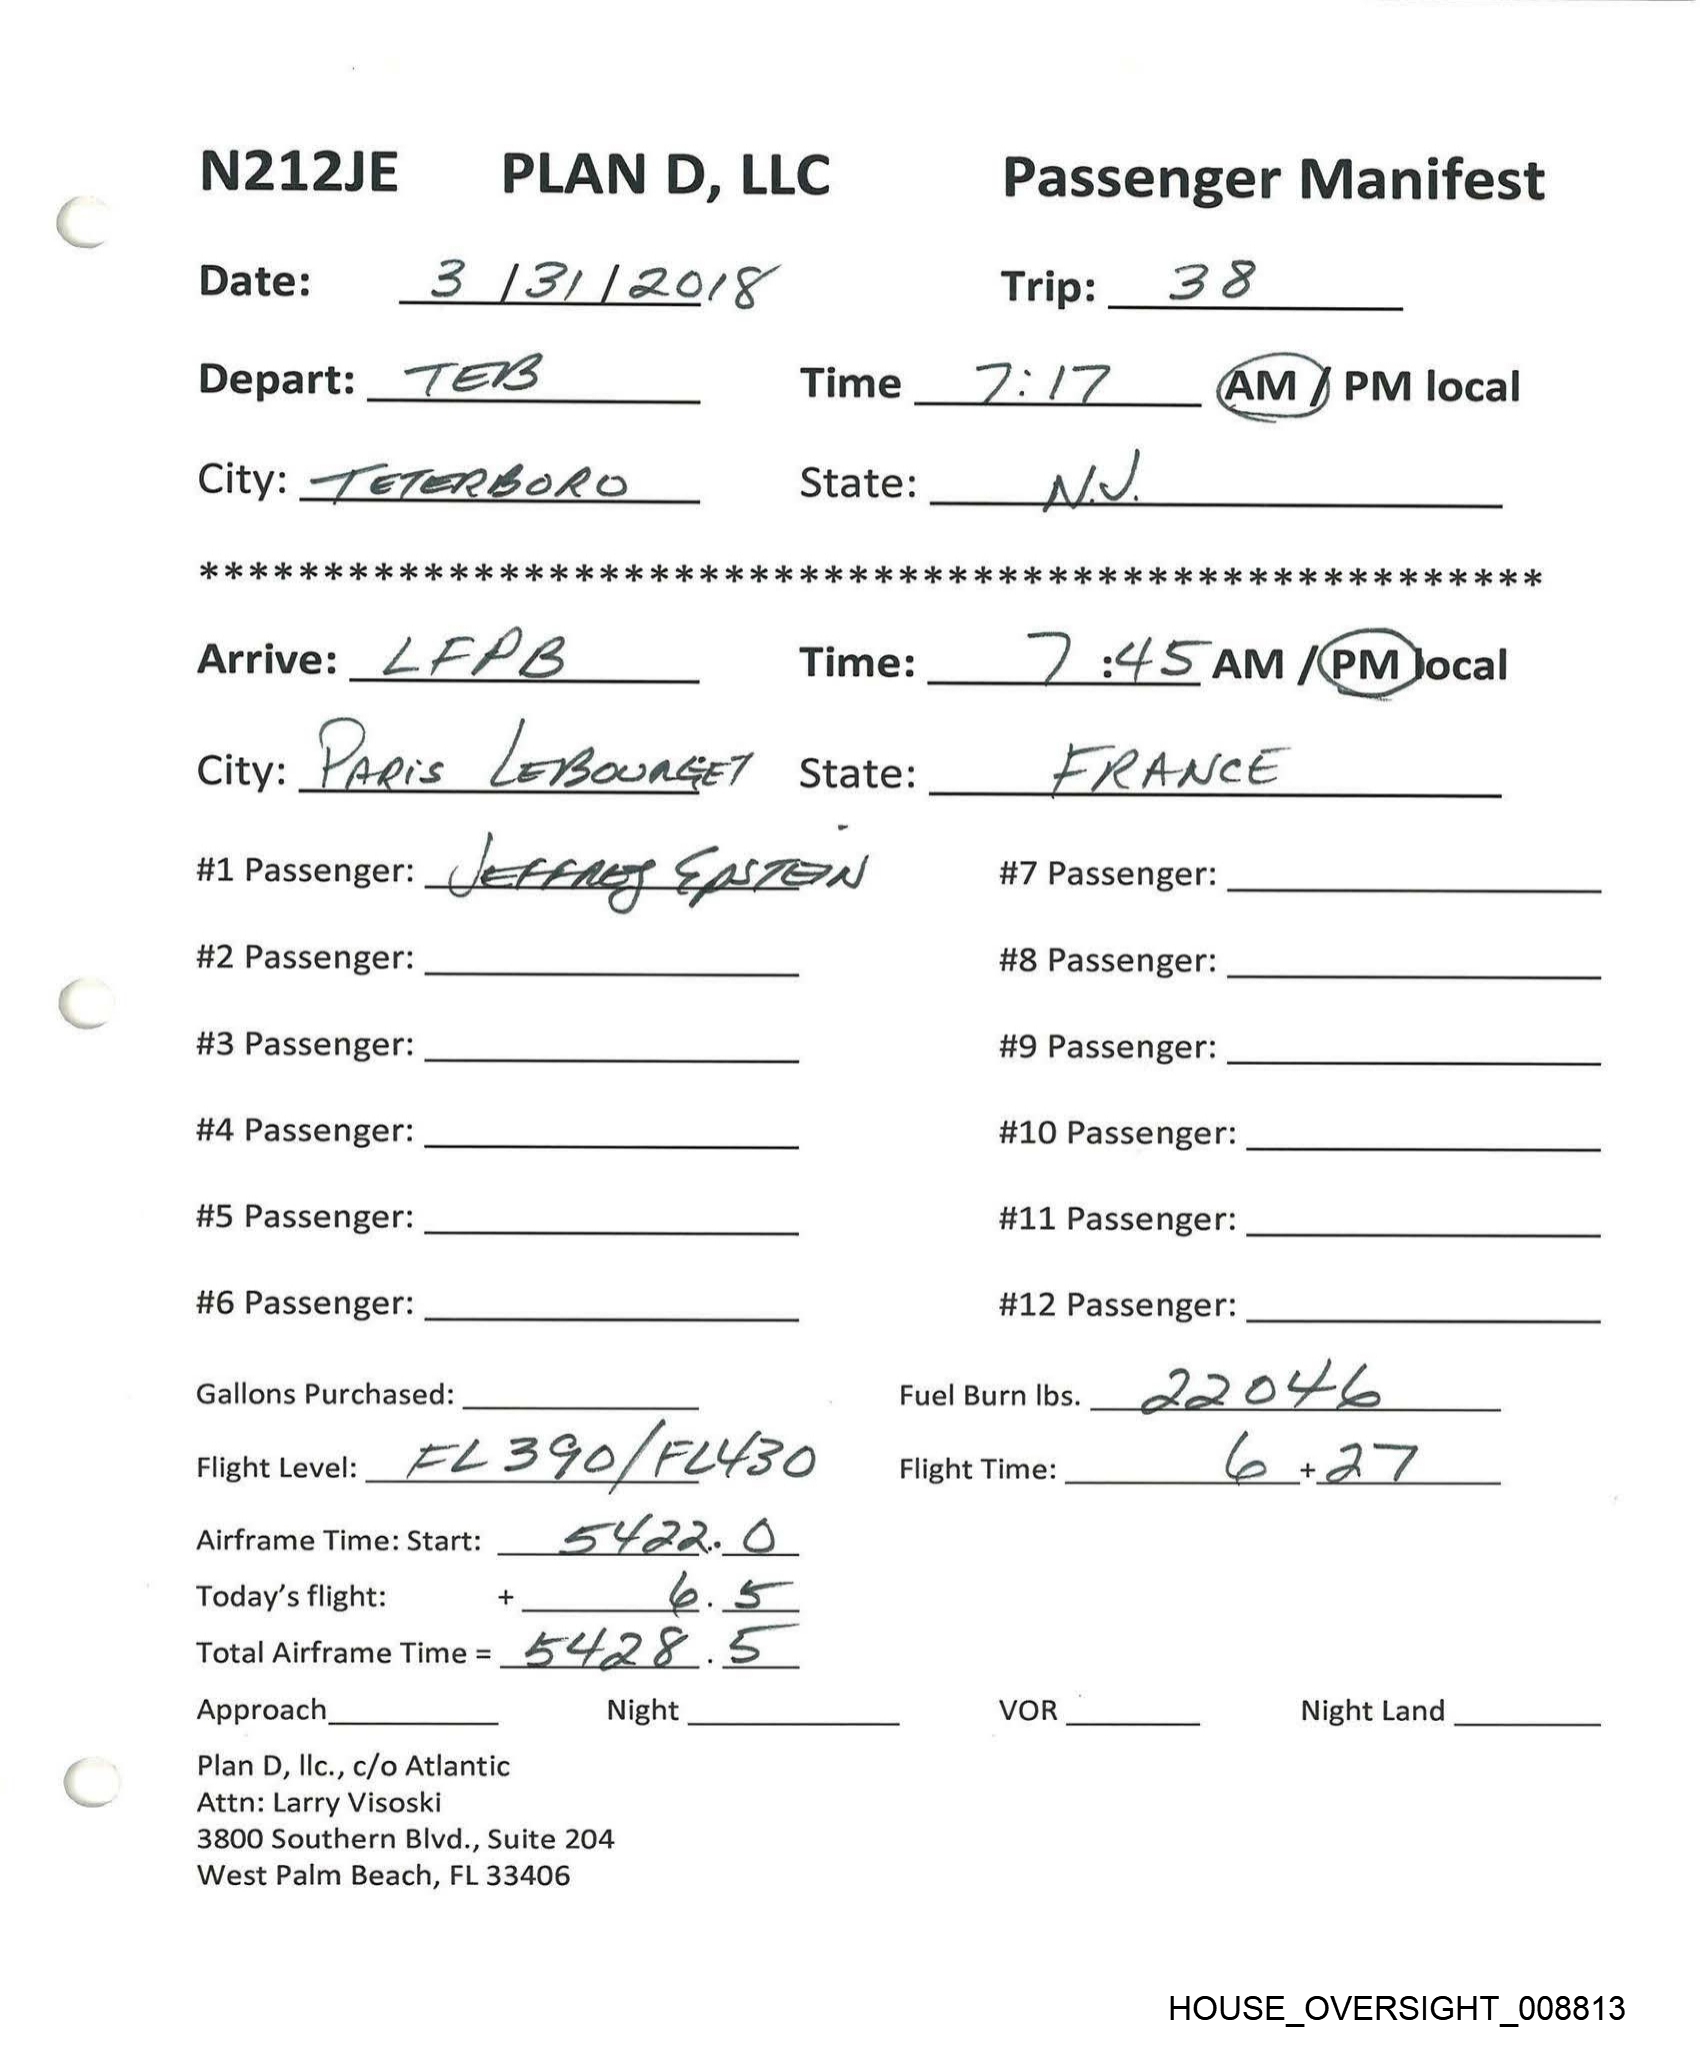 N212JE PLAN D, LLC Passenger Manifest
Date: 3 /31/2018 Trip: 38
Depart: TEB Time 7:17 AM / PM local
City: TETERBORO State: N.J.
******************************************************
Arrive: LFPB Time: 7:45 AM / PM local
City: PARIS LEBOURGET State: FRANCE
#1 Passenger: JEFFREY EPSTEIN #7 Passenger:
#2 Passenger: #8 Passenger:
#3 Passenger: #9 Passenger:
#4 Passenger: #10 Passenger:
#5 Passenger: #11 Passenger:
#6 Passenger: #12 Passenger:
Gallons Purchased: Fuel Burn lbs. 22046
Flight Level: FL390/FL430 Flight Time: 6 + 27
Airframe Time: Start: 5422.0
Today's flight: + 6.5
Total Airframe Time = 5428.5
Approach Night VOR Night Land
Plan D, llc., c/o Atlantic
Attn: Larry Visoski
3800 Southern Blvd., Suite 204
West Palm Beach, FL 33406
HOUSE_OVERSIGHT_008813